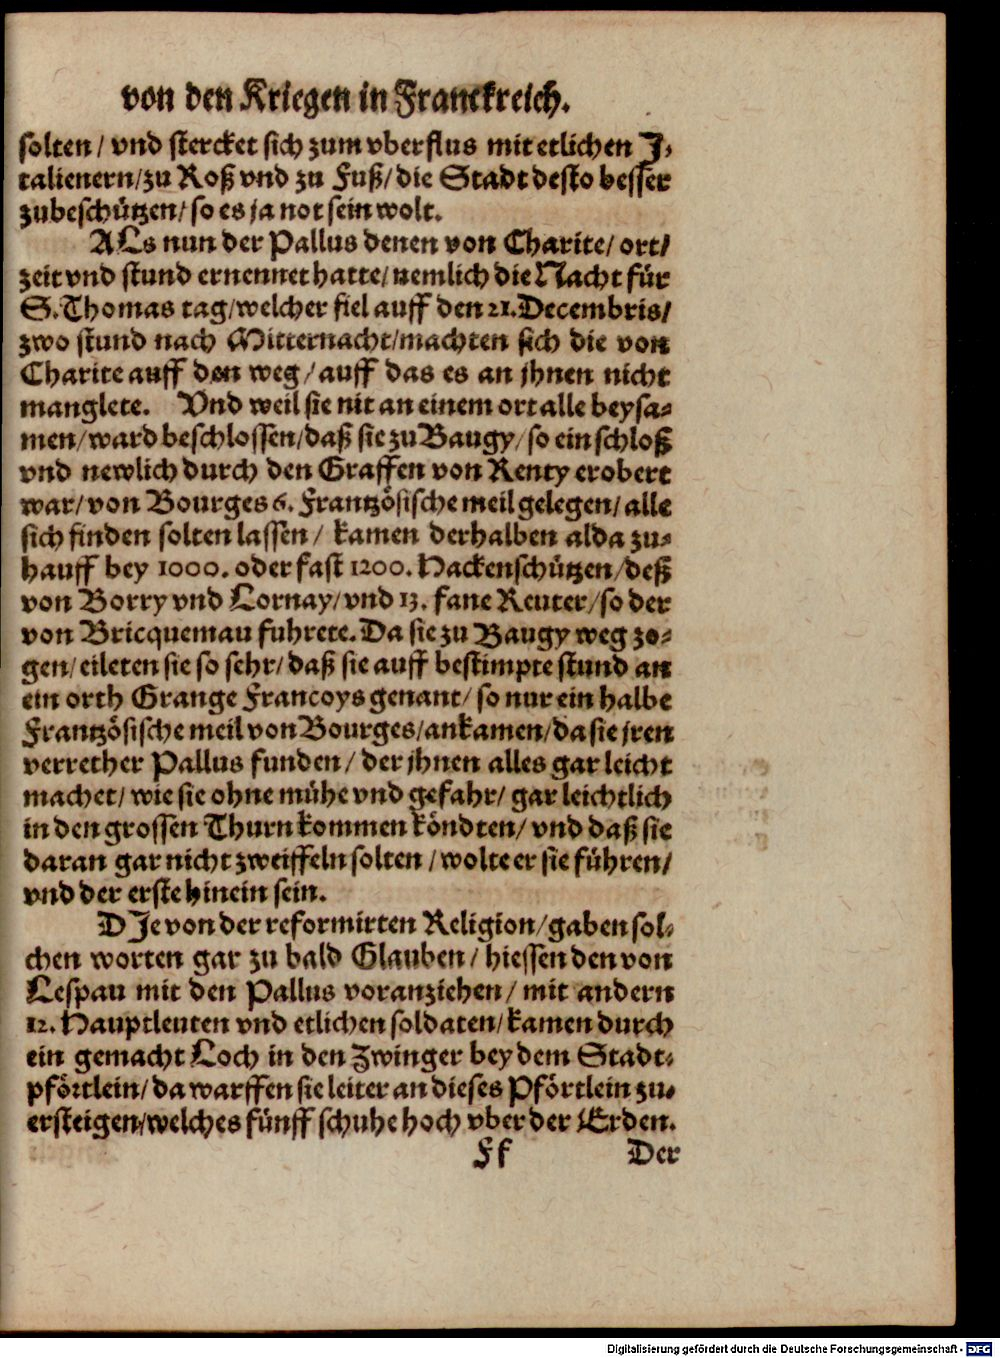 von den Kriegen in Franckreich.
solten / vnd stercket sich zum vberflus mit etlichen J-
talienern/zu Roß vnd zu Fuß/die Stadt desto besser
zubeschützen/ so es ja not sein wolt.
ALs nun der Pallus denen von Charite/ ort/
zeit vnd stund ernennet hatte/nemlich die Nacht für
S.Thomas tag/welcher fiel auff den 21.Decembris/
zwo stund nach Mitternacht/machten sich die von
Charite auff den weg/auff das es an jhnen nicht
manglete. Vnd weil sie nit an einem ort alle beysa-
men/ward beschlossen/daß sie zu Baugy/so ein schloß
vnd newlich durch den Graffen von Renty erobert
war/von Bourges 6. Frantzösische meil gelegen/alle
sich finden solten lassen/ kamen derhalben alda zu-
hauff bey 1000. oder fast 1200. Hackenschützen/deß
von Borry vnd Lornay/vnd 13. fane Reuter/so der
von Bricquemau fuhrete. Da sie zu Baugy weg zo-
gen/eileten sie so sehr/daß sie auff bestimpte stund an
ein orth Grange Francoys genant/ so nur ein halbe
Frantzösische meil von Bourges/ankamen/da sie jren
verrether Pallus funden/ der jhnen alles gar leicht
machet/ wie sie ohne mühe vnd gefahr/ gar leichtlich
in den grossen Thurn kommen köndten/ vnd daß sie
daran gar nicht zweiffeln solten /wolte er sie führen/
vnd der erste hinein sein.
DJe von der reformirten Religion/gaben sol-
chen worten gar zu bald Glauben/ hiessen den von
Lespau mit den Pallus voranziehen/ mit andern
12. Hauptleuten vnd etlichen soldaten/kamen durch
ein gemacht Loch in den Zwinger bey dem Stadt-
pförtlein/da warffen sie leiter an dieses Pförtlein zu-
ersteigen/welches fünff schuhe hoch vber der Erden.
Ff Der
Digitalisierung gefördert durch die Deutsche Forschungsgemeinschaft - DFG